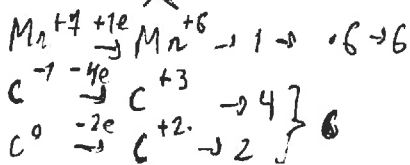 Mn⁺⁷ +1e → Mn⁺⁶ → 1 → ·6 → 6
C⁻¹ -4e → C⁺³ → 4 } 6
C⁰ -2e → C⁺². → 2